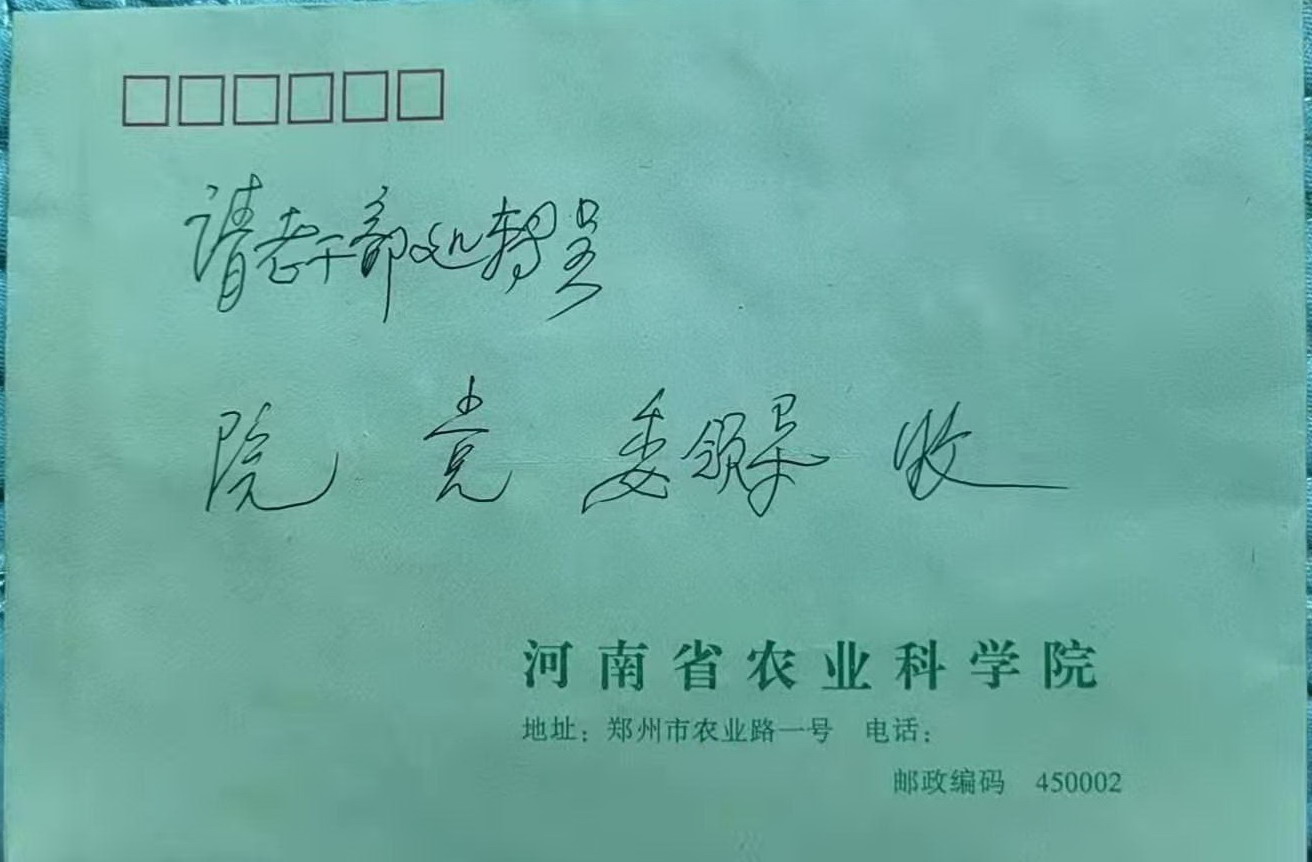 请老干部处转呈
院党委领导 收
河南省农业科学院
地址：郑州市农业路一号 电话：
邮政编码 450002